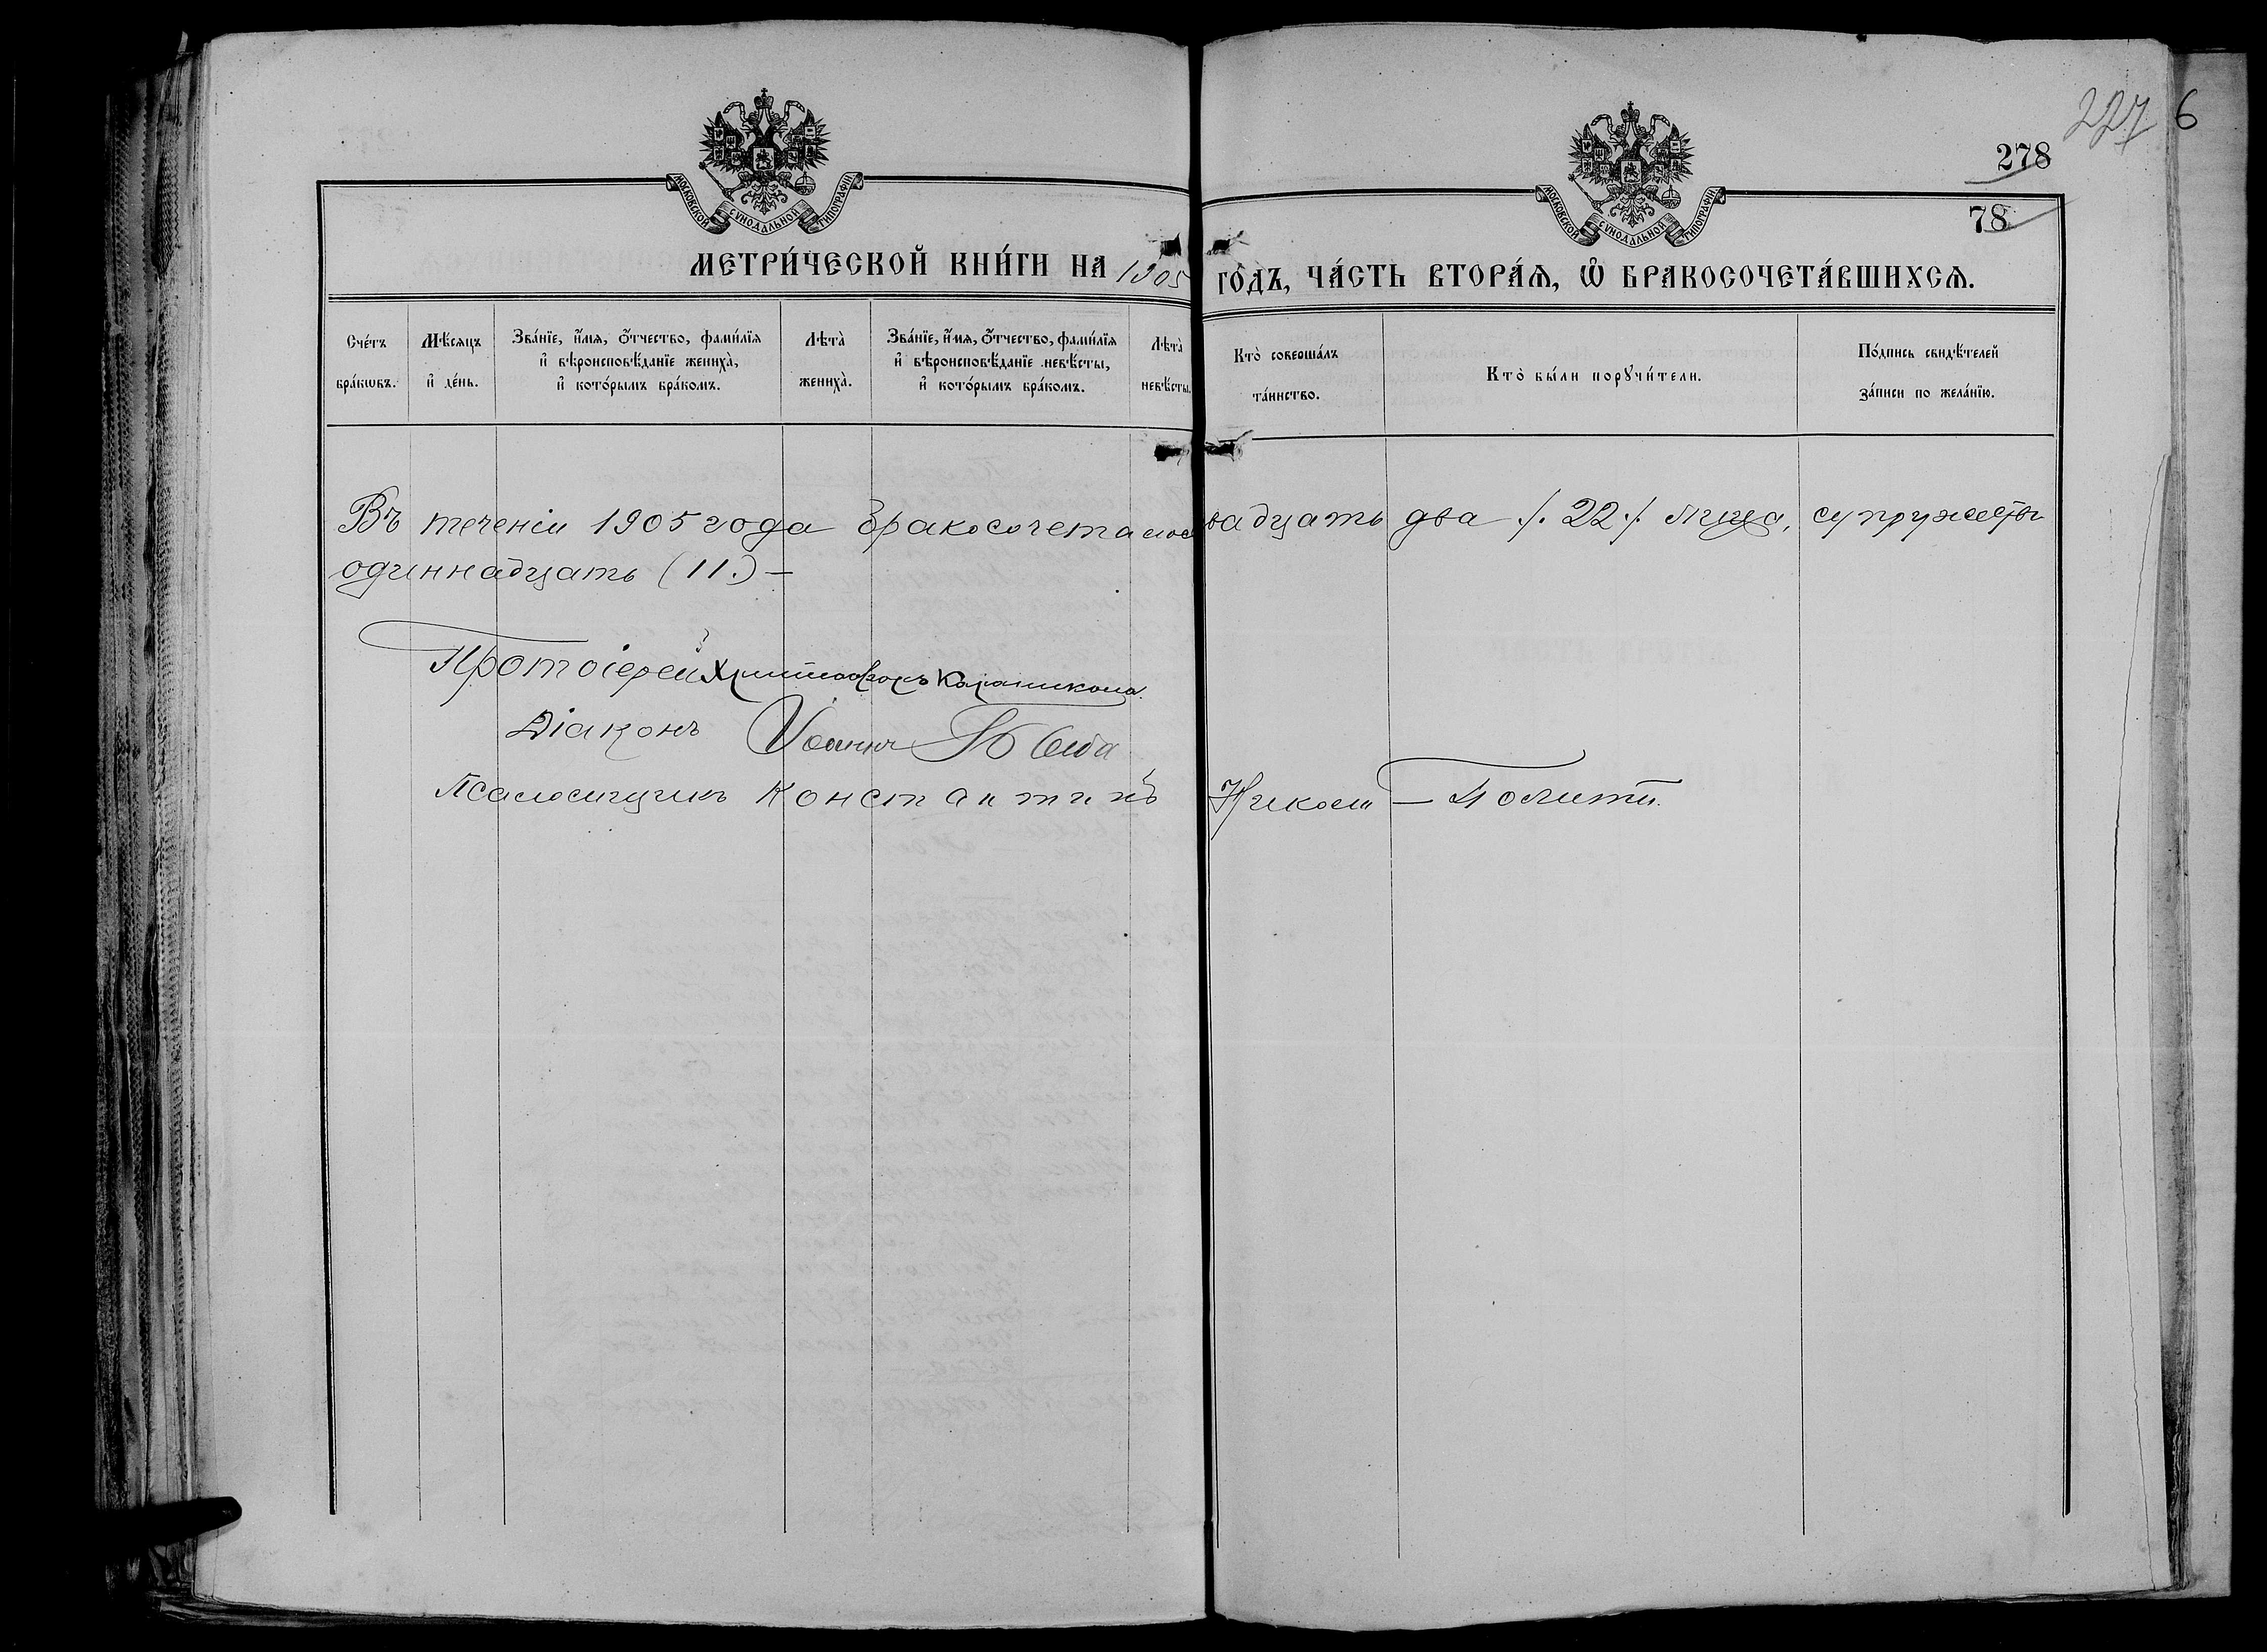 227 6
278
78
МОСКОВСКОЙ СѴНОДАЛЬНОЙ ТИПОГРАФІИ
МОСКОВСКОЙ СѴНОДАЛЬНОЙ ТИПОГРАФІИ
МЕТРИ́ЧЕСКОЙ КНИ́ГИ НА 1905 ГО́ДЪ, ЧА́СТЬ ВТОРА́Ѧ, Ѿ БРАКОСОЧЕТА́ВШИХСѦ.
Сче́тъ бра́кѡвъ.
Мѣ́сяцъ и҆ де́нь.
Зва́нїе, и҆́мя, ѻ҆́тчество, фами́лїя и҆ вѣроисповѣ́данїе жениха̀, и҆ кото́рымъ бра́комъ.
Лѣта̀ жениха̀.
Зва́нїе, и҆́мя, ѻ҆́тчество, фами́лїя и҆ вѣроисповѣ́данїе невѣ́сты, и҆ кото́рымъ бра́комъ.
Лѣта̀ невѣ́сты.
Кто̀ соверша́лъ та́инство.
Кто̀ бы́ли порꙋчи́тели.
По́дпись свидѣ́телей за́писи по жела́нїю.
Въ теченіи 1905 года бракосочеталось двадцать два /. 22 ./ лица, супружествъ
одиннадцать (11.) —
Протоіерей Христофоръ
Діаконъ Іоаннъ
Псаломщикъ Константинъ Николи — Политти.